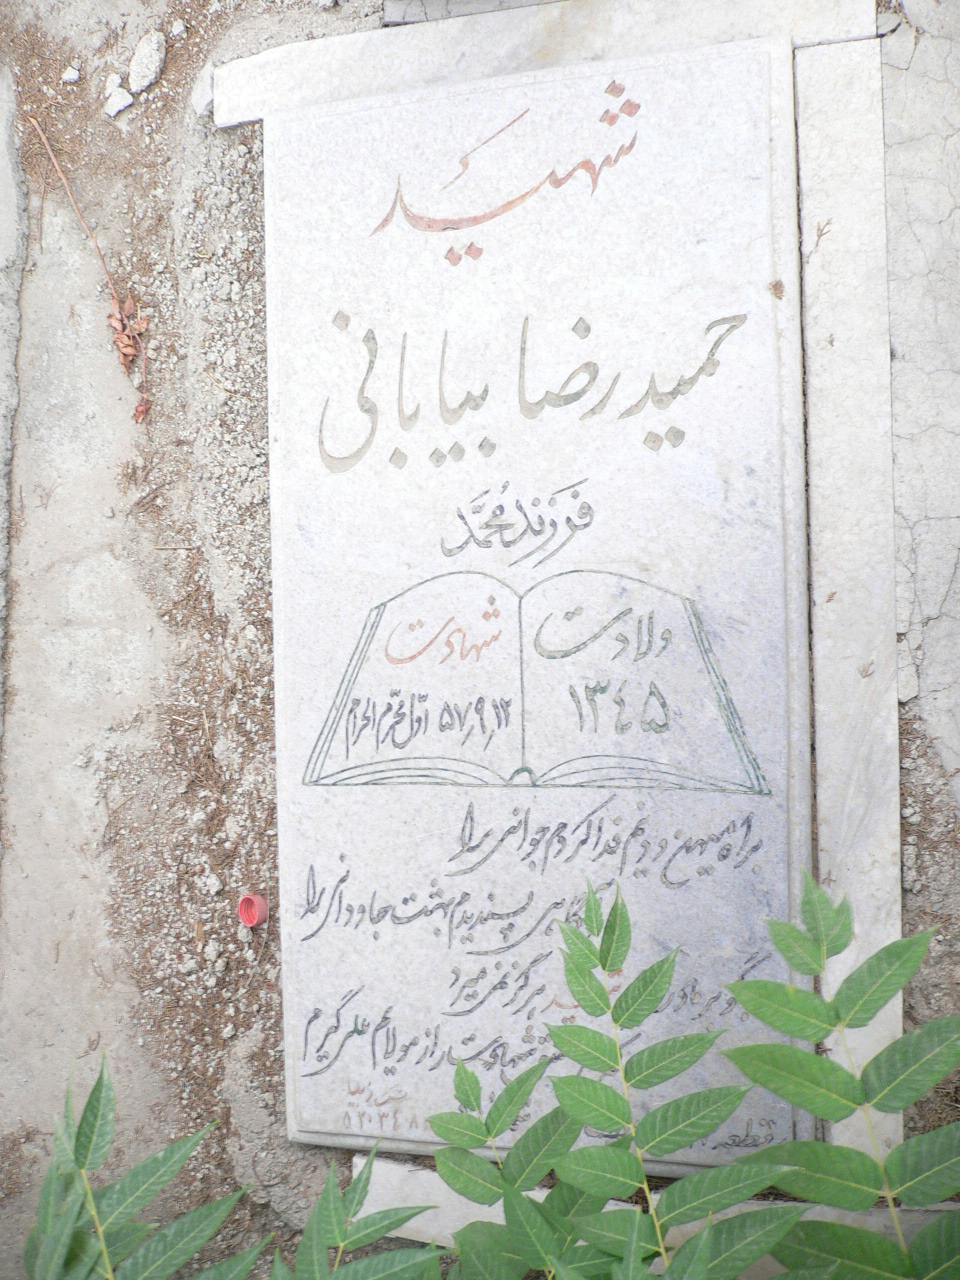 شهید
حمید رضا بیابانی
فرزند مُحمَّد
ولادت
۱۳۴۵
شهادت
۵۷٫۹٫۱۲ اوّل محرّم الحرام
براه میهن و دینم فدا کردم جوانی را
پسندیدم بهشت جاودانی را
گو بر مادر هرگز نمی میرد
از مولایم علی گیرم
۵۲۰۳۴۸
قطعه